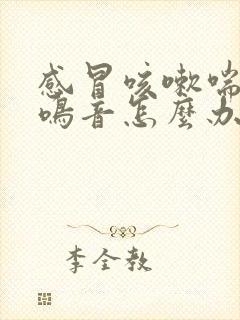 感冒咳嗽喘
鳴音怎麼办
李全教